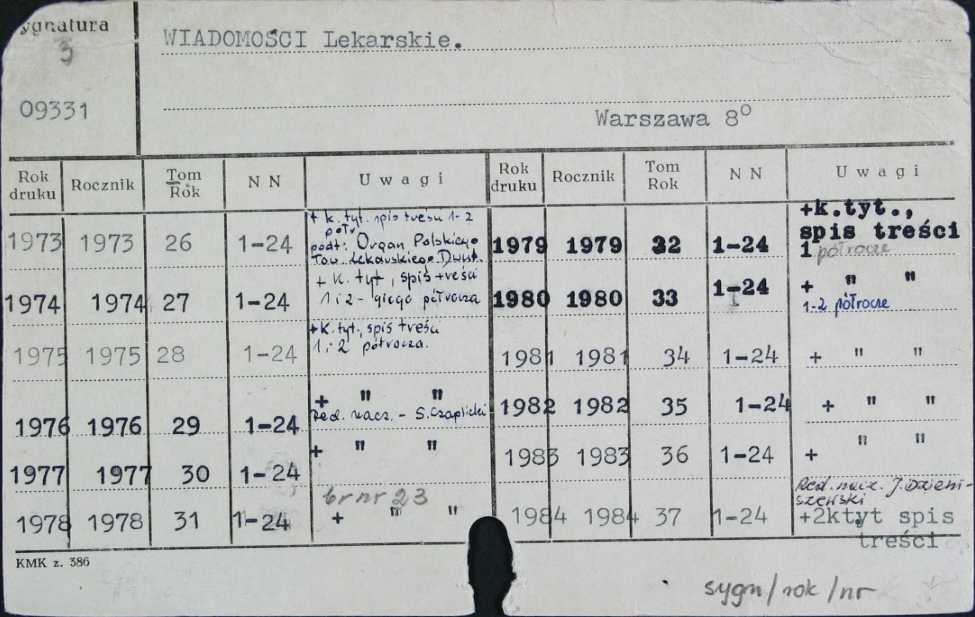 Sygnatura
3
09331
WIADOMOŚCI Lekarskie.
Warszawa 8º
Rok druku Rocznik Tom Rok N N U w a g i
1973 1973 26 1-24 + k. tyt. spis treści 1-2
podt: Organ Polskiego
Tow. Lekarskiego. Dwut.
1974 1974 27 1-24 + k. tyt, spis treści
1 i 2-giego półrocza
1975 1975 28 1-24 + k. tyt., spis treści
1 i 2 półrocza.
1976 1976 29 1-24 + " "
Red. nacz. - S. Czaplicki
1977 1977 30 1-24 + " "
br nr 23
1978 1978 31 1-24 + " "
Rok druku Rocznik Tom Rok N N U w a g i
1979 1979 32 1-24 +k.tyt.,
spis treści
1 półrocze
1980 1980 33 1-24 + " "
1-2 półrocze
1981 1981 34 1-24 + " "
1982 1982 35 1-24 + " "
1983 1983 36 1-24 + " "
Red. nacz. J. Dzieni-
szewski
1984 1984 37 1-24 +2ktyt spis
treści
KMK z. 386
sygn/rok/nr